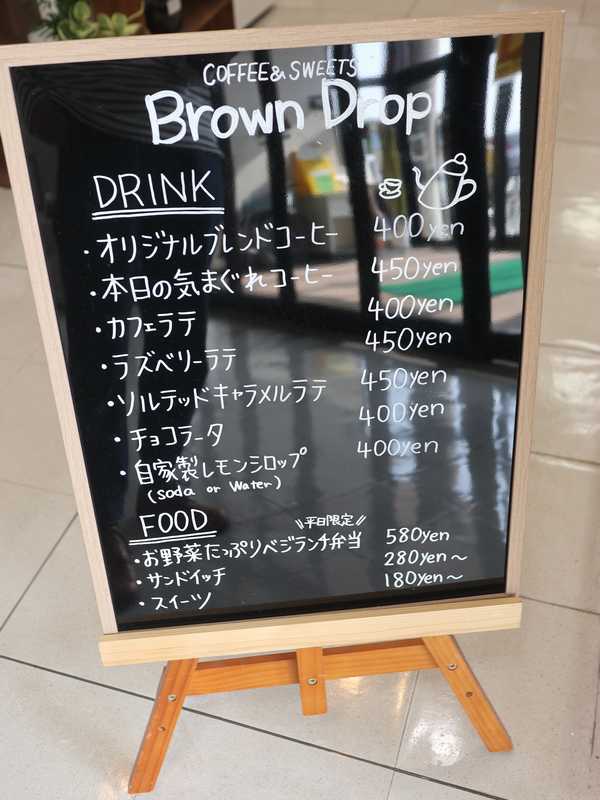 COFFEE & SWEETS
Brown Drop
DRINK
・オリジナルブレンドコーヒー 400yen
・本日の気まぐれコーヒー 450yen
・カフェラテ 400yen
・ラズベリーラテ 450yen
・ソルテッドキャラメルラテ 450yen
・チョコラータ 400yen
・自家製レモンシロップ 400yen
(soda or water)
FOOD
\\平日限定//
・お野菜たっぷりベジランチ弁当 580yen
・サンドイッチ 280yen～
・スイーツ 180yen～